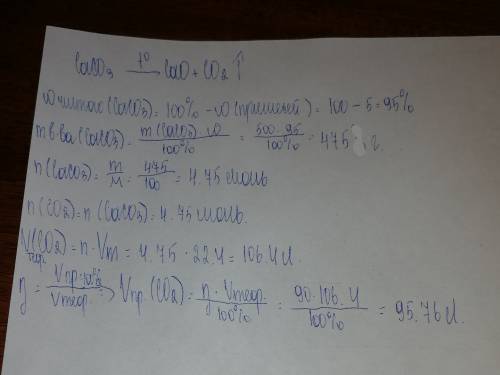 CaCO₃ —t°→ CaO + CO₂ ↑
ω чистого (CaCO₃) = 100% - ω (примесей) = 100 - 5 = 95%
m в-ва (CaCO₃) = m(CaCO₃)·ω / 100% = 500·95 / 100% = 475 г.
n (CaCO₃) = m / M = 475 / 100 = 4.75 моль
n (CO₂) = n (CaCO₃) = 4.75 моль.
V теор. (CO₂) = n · Vm = 4.75 · 22.4 = 106.4 л.
η = Vпр·100% / Vтеор. → Vпр. (CO₂) = η · Vтеор. / 100% = 90·106.4 / 100% = 95.76 л.